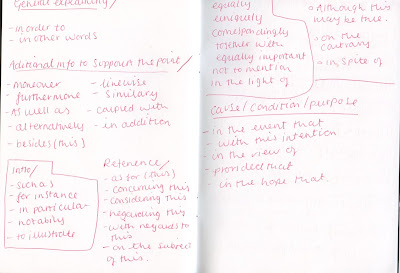 General explaining/
- in order to
- in other words
Aditional info to support the point/
- moreover
- furthermore
- As well as
- alternatively
- besides (this)
- likewise
- Similary
- Coupled with
- in addition
Intro/
- such as
- for instance
- in particular
- notably
- to illustrate
Reference/
- as for (this)
- concerning this
- considering this
- regarding this
- with regards to
this
- on the subject
of this.
equally
correspondingly
together with
equally important
not to mention
in the light of
Although this
may be true.
- on the
contrary
- in spite of
cause/condition/purpose
- in the event that
- with this intention
- in the view of
- provided that
- in the hope that.